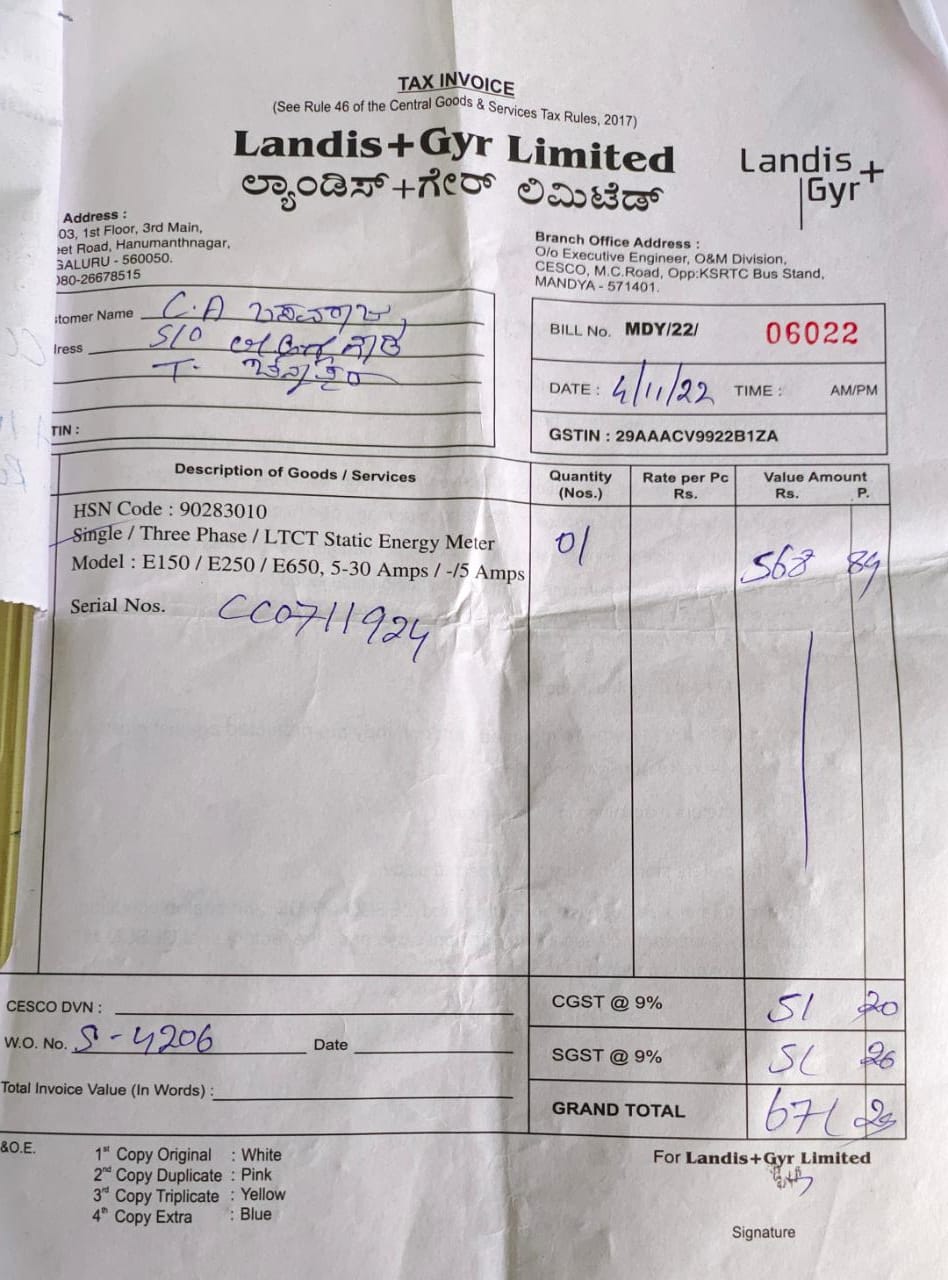 TAX INVOICE
(See Rule 46 of the Central Goods & Services Tax Rules, 2017)
Landis+Gyr Limited
ಲ್ಯಾಂಡಿಸ್+ಗೇರ್ ಲಿಮಿಟೆಡ್
Landis+
Gyr
Address :
03, 1st Floor, 3rd Main,
eet Road, Hanumanthnagar,
GALURU - 560050.
080-26678515
Branch Office Address :
O/o Executive Engineer, O&M Division,
CESCO, M.C.Road, Opp:KSRTC Bus Stand,
MANDYA - 571401.
stomer Name C.A ಬಸವರಾಜು,
dress S/O
T.
TIN :
BILL No. MDY/22/ 06022
DATE : 4/11/22 TIME : AM/PM
GSTIN : 29AAACV9922B1ZA
Description of Goods / Services Quantity (Nos.) Rate per Pc Rs. Value Amount Rs. P.
HSN Code : 90283010
Single / Three Phase / LTCT Static Energy Meter 01 568 89
Model : E150 / E250 / E650, 5-30 Amps / -/5 Amps
Serial Nos. CC0711924
CESCO DVN :
CGST @ 9% 51 20
W.O. No. S-4206 Date
SGST @ 9% 51 20
Total Invoice Value (In Words) :
GRAND TOTAL 671 29
&O.E.
1st Copy Original : White
2nd Copy Duplicate : Pink
3rd Copy Triplicate : Yellow
4th Copy Extra : Blue
For Landis+Gyr Limited
Signature